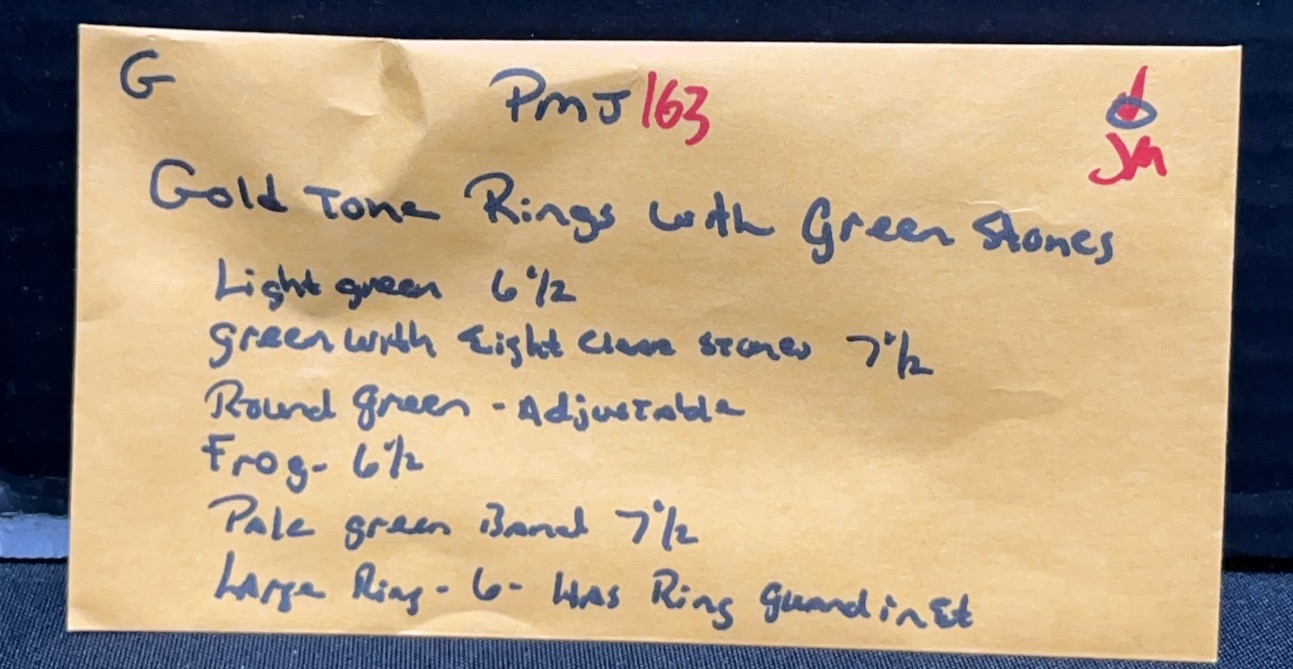 G PMJ 163
JM
Gold Tone Rings with Green Stones
Light green 6 1/2
green with Eight Clear stones 7 1/2
Round green - Adjustable
Frog - 6 1/2
Pale green Band 7 1/2
Large Ring - 6 - Has Ring guard in it